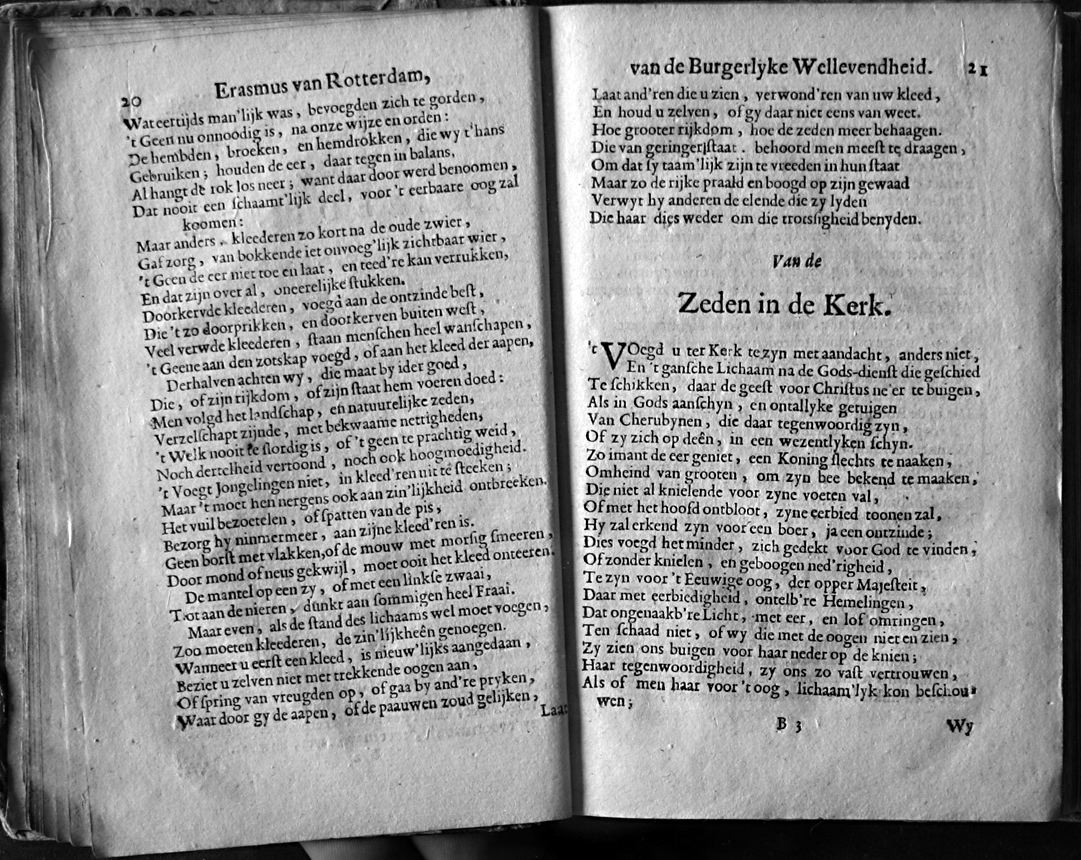 20
Erasmus van Rotterdam,
Wat eertijds man'lijk was, bevoegden zich te gorden,
't Geen nu onnoodig is, na onze wijze en orden:
De hembden, broeken, en hemdrokken, die wy t'hans
Gebruiken; houden de eer, daar tegen in balans.
Al hangt de rok los neer; want daar door werd benoomen,
Dat nooit een schaamt'lijk deel, voor 't eerbaare oog zal
koomen:
Maar anders. kleederen zo kort na de oude zwier,
Gaf zorg, van bokkende iet onvoeg'lijk zichtbaar wier,
't Geen de eer niet toe en laat, en teed're kan verrukken,
En dat zijn over al, oneerelijke stukken.
Doorkervde kleederen, voegd aan de ontzinde best,
Die 't zo doorprikken, en doorkerven buiten west,
Veel verwde kleederen, staan menschen heel wanschapen,
't Geene aan den zotskap voegd, of aan het kleed der aapen,
Derhalven achten wy, die maat by ider goed,
Die, of zijn rijkdom, of zijn staat hem voeren doed:
Men volgd het landschap, en natuurelijke zeden,
Verzelschapt zijnde, met bekwaame nettigheden,
't Welk nooit te slordig is, of 't geen te prachtig weid,
Noch dertelheid vertoond, noch ook hoogmoedigheid.
't Voegt Jongelingen niet, in kleed'ren uit te steeken;
Maar 't moet hen nergens ook aan zin'lijkheid ontbreeken.
Het vuil bezoetelen, of spatten van de pis,
Bezorg hy nimmermeer, aan zijne kleed'ren is.
Geen borst met vlakken, of de mouw met morsig smeeren,
Door mond of neus gekwijl, moet ooit het kleed onteeren.
De mantel op een zy, of met een linkse zwaai,
Tot aan de nieren, dunkt aan sommigen heel Fraai.
Maar even, als de stand des lichaams wel moet voegen,
Zoo moeten kleederen, de zin'lijkheên genoegen.
Wanneer u eerst een kleed, is nieuw'lijks aangedaan,
Beziet u zelven niet met trekkende oogen aan,
Of spring van vreugden op, of gaa by and're pryken,
Waar door gy de aapen, of de paauwen zoud gelijken,
Laat
van de Burgerlyke Wellevendheid. 21
Laat and'ren die u zien, verwond'ren van uw kleed,
En houd u zelven, of gy daar niet eens van weet.
Hoe grooter rijkdom, hoe de zeden meer behaagen.
Die van geringer staat. behoord men meest te draagen,
Om dat sy taam'lijk zijn te vreeden in hun staat
Maar zo de rijke praald en boogd op zijn gewaad
Verwyt hy anderen de elende die zy lyden
Die haar dies weder om die trotsigheid benyden.
Van de
Zeden in de Kerk.
't VOegd u ter Kerk te zyn met aandacht, anders niet,
En 't gansche Lichaam na de Gods-dienst die geschied
Te schikken, daar de geest voor Christus ne'er te buigen,
Als in Gods aanschyn, en ontallyke getuigen
Van Cherubynen, die daar tegenwoordig zyn,
Of zy zich op deên, in een wezentlyken schyn.
Zo imant de eer geniet, een Koning slechts te naaken,
Omheind van grooten, om zyn bee bekend te maaken,
Die niet al knielende voor zyne voeten val,
Of met het hoofd ontbloot, zyne eerbied toonen zal,
Hy zal erkend zyn voor een boer, ja een ontzinde;
Dies voegd het minder, zich gedekt voor God te vinden,
Of zonder knielen, en geboogen ned'righeid,
Te zyn voor 't Eeuwige oog, der opper Majesteit,
Daar met eerbiedigheid, ontelb're Hemelingen,
Dat ongenaakb're Licht, met eer, en lof omringen,
Ten schaad niet, of wy die met de oogen niet en zien,
Zy zien ons buigen voor haar neder op de knien;
Haar tegenwoordigheid, zy ons zo vast vertrouwen,
Als of men haar voor 't oog, lichaam'lyk kon beschou-
wen;
B 3
Wy